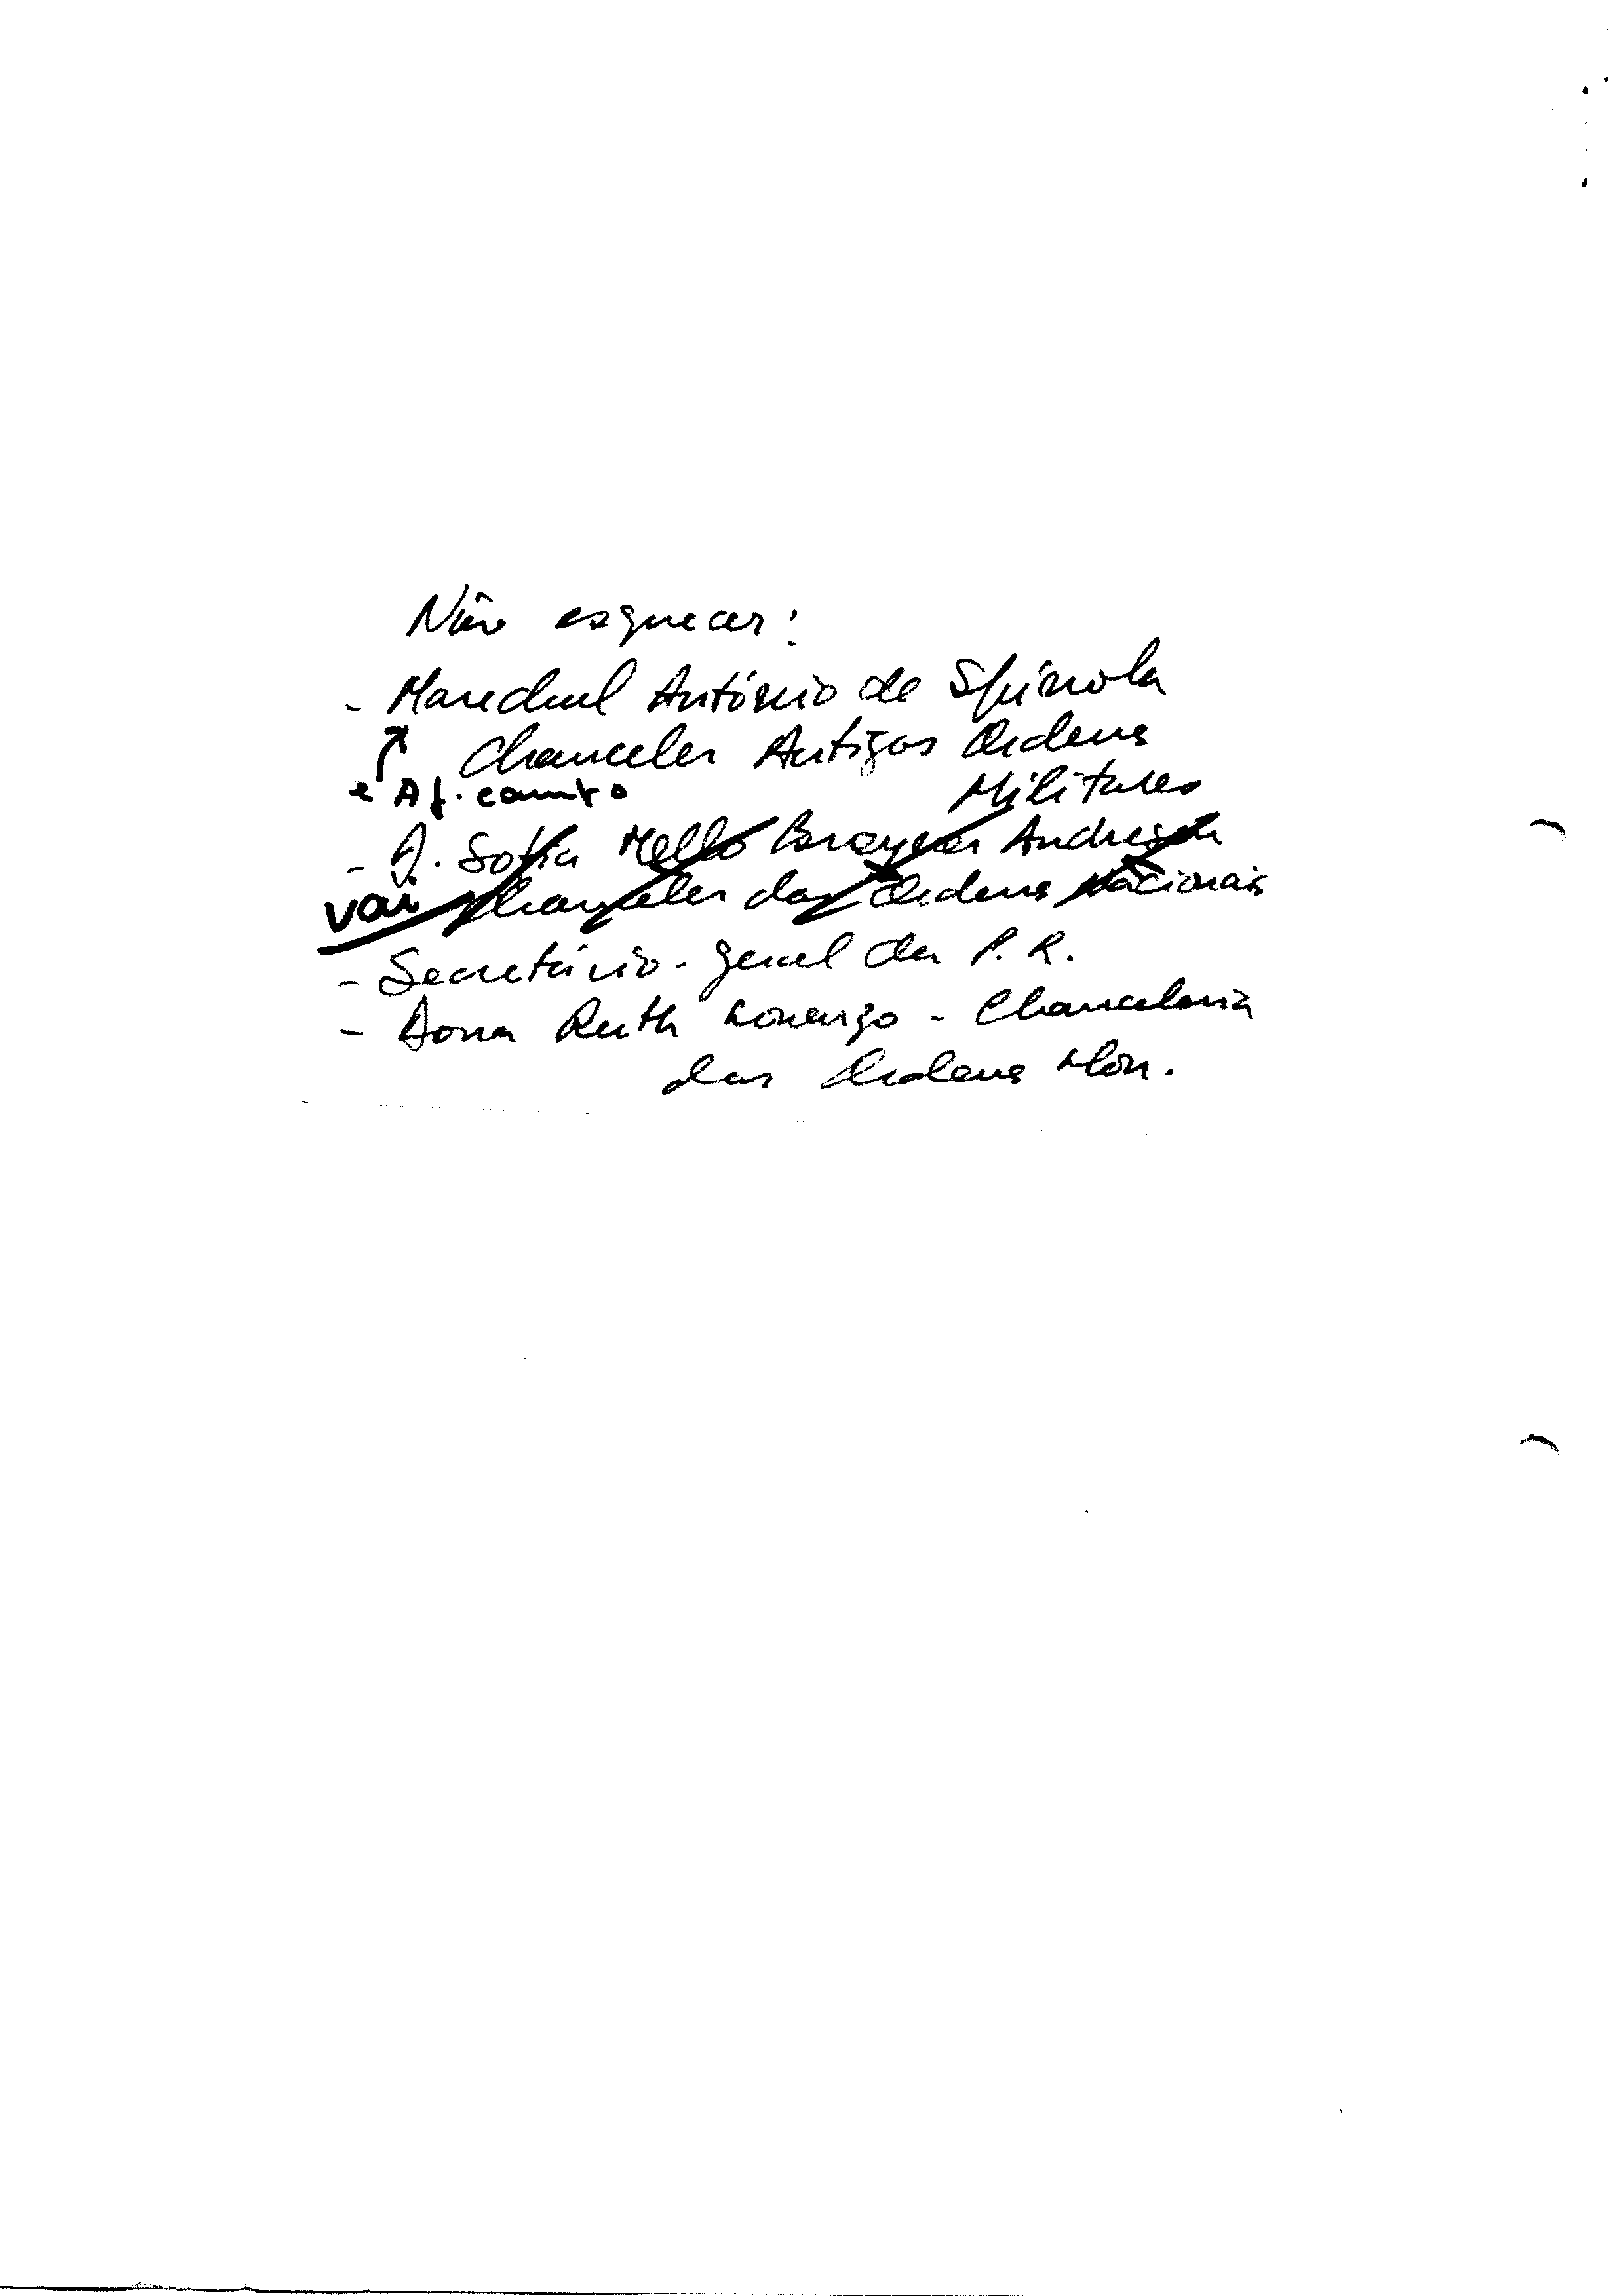 Não esquecer:
- Marechal António de Spínola
Chanceler Antigas Ordens
Militares
e Aj. campo
- D. Sofia Mello Breyner Andresen
vai Chanceler das Ordens Nacionais
- Secretário-geral da P. R.
- Dona Ruth Lourenço - Chancelaria
das Ordens Hon.